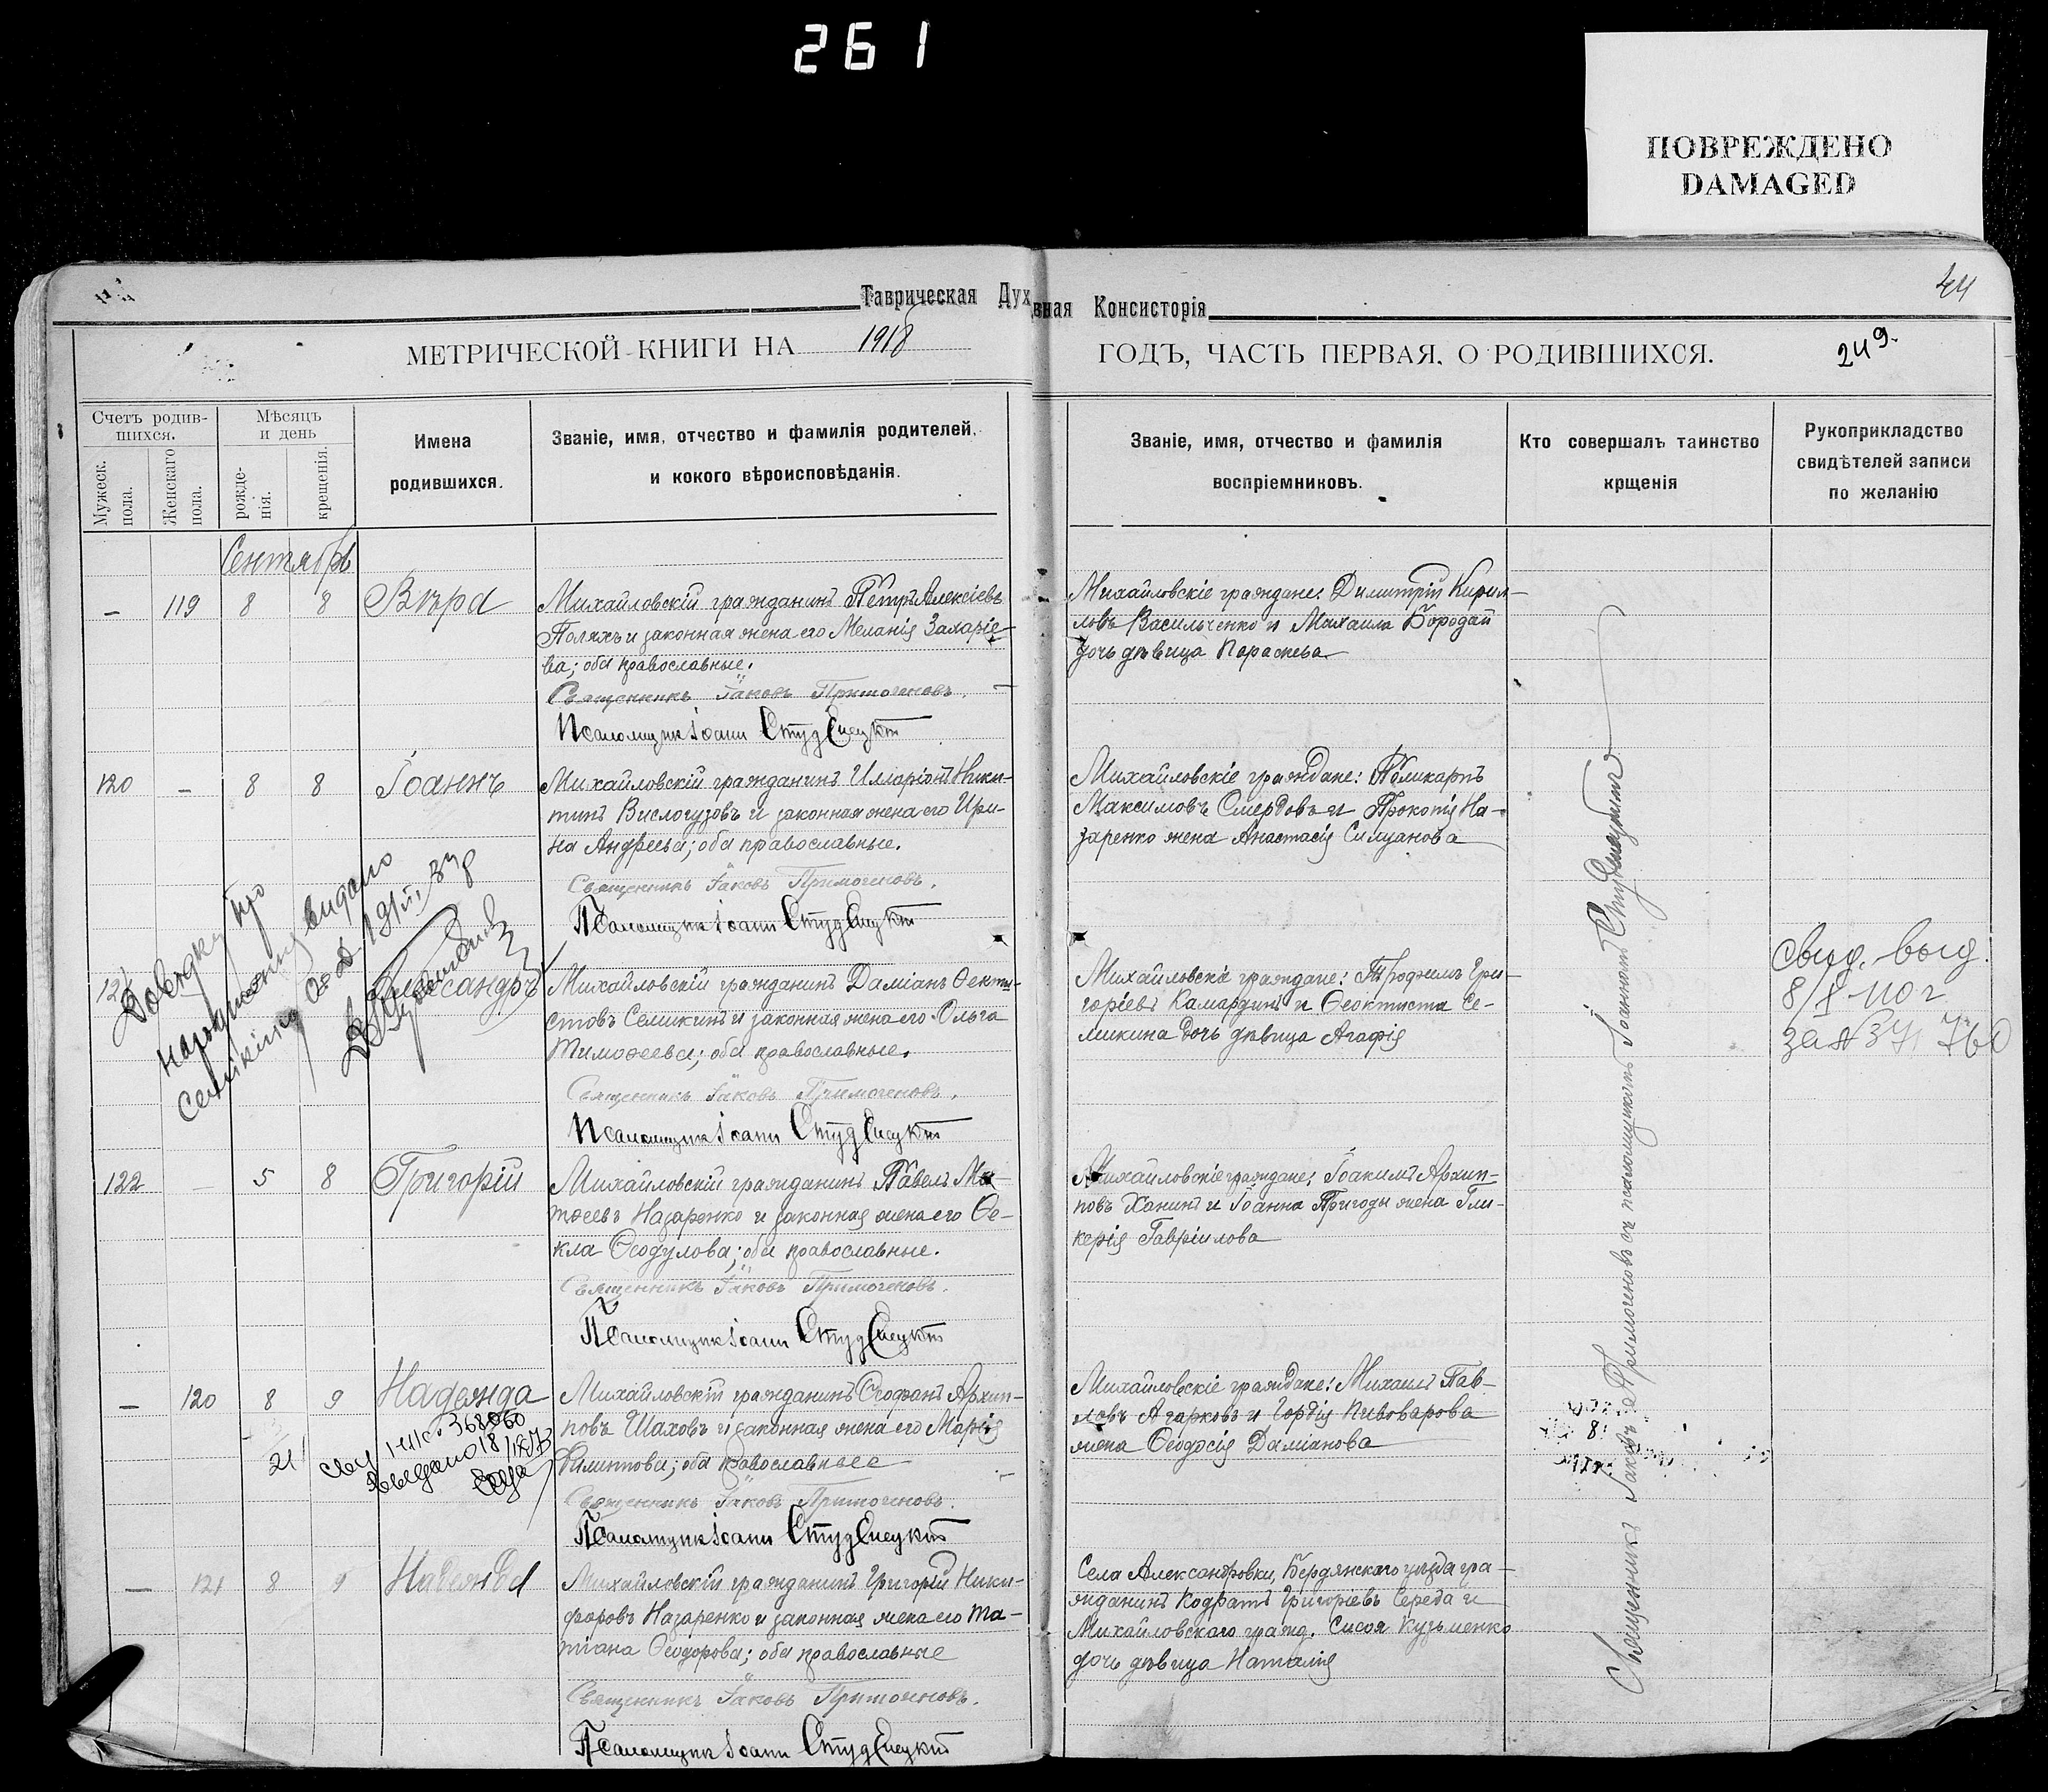 261
ПОВРЕЖДЕНО
DAMAGED
44
Таврическая Дух
вная Консисторія
МЕТРИЧЕСКОЙ КНИГИ НА 1918
ГОДЪ, ЧАСТЬ ПЕРВАЯ, О РОДИВШИХСЯ.
249.
Счетъ родив-
шихся.
Мужеск.
пола.
Женскаго
пола.
Мѣсяцъ
и день
рожде-
нія.
крещенія.
Имена
родившихся.
Званіе, имя, отчество и фамилія родителей,
и кокого вѣроисповѣданія.
Званіе, имя, отчество и фамилія
воспріемниковъ.
Кто совершалъ таинство
крщенія
Рукоприкладство
свидѣтелей записи
по желанію
Сентябрь
— 119 8 8 Вѣра
Михайловскій гражданинъ Петръ Алексіевъ
Поляхъ и законная жена его Меланія Захаріе-
ва; оба православные.
Священникъ Іаковъ Примогеновъ.
Псаломщик Іоанн
Михайловскіе граждане: Димитрій Кирил-
ловъ Васильченко и Михаила Бородай
дочь дѣвица Параскева
120 — 8 8 Іоаннъ
Михайловскій гражданинъ Илларіонъ Ники-
тинъ Вислогузовъ и законная жена его Ири-
на Андреева; оба православные.
Священникъ Іаковъ Примогеновъ.
Псаломщик Іоанн
Михайловскіе граждане: Поликарпъ
Максимовъ Смердовъ и Прокопія На-
заренко жена Анастасія Силуанова
Довідку про
народження видано
Александръ
Михайловскій гражданинъ Даміанъ Ѳекти-
стовъ Семикинъ и законная жена его Ольга
Тимоѳеева; оба православные.
Священникъ Іаковъ Примогеновъ.
Псаломщик Іоанн
Михайловскіе граждане: Трофимъ Гри-
горіевъ Камардинъ и Ѳеоктиста Се-
микина дочь дѣвица Агафія
Свид. выд.
122 — 5 8 Григорій
Михайловскій гражданинъ Павелъ Ма-
тѳеевъ Назаренко и законная жена его Ѳе-
кла Ѳеодулова; оба православные.
Священникъ Іаковъ Примогеновъ.
Псаломщик Іоанн
Михайловскіе граждане: Іоакимъ Архип-
повъ Ханинъ и Іоанна Пригоды жена Гли-
керія Гавріилова
— 120 8 9 Надежда
Михайловскій гражданинъ Ѳеофанъ Архип-
повъ Шаховъ и законная жена его Марія
Филиппова; оба православные
Священникъ Іаковъ Примогеновъ.
Псаломщик Іоанн
Михайловскіе граждане: Михаилъ Пав-
ловъ Агарковъ и Гордія Пивоварова
жена Ѳеодосія Даміанова
— 121 8 9 Надежда
Михайловскій гражданинъ Григорій Ники-
форовъ Назаренко и законная жена его Та-
тіана Ѳеодорова; оба православные
Священникъ Іаковъ Примогеновъ.
Псаломщик Іоанн
Села Александровки, Бердянскаго уѣзда гра-
жданинъ Кодратъ Григоріевъ Середа и
Михайловскаго гражд. Сисоя Кузьменко
дочь дѣвица Наталія
Священникъ Іаковъ Примогеновъ съ псаломщикомъ Іоанномъ